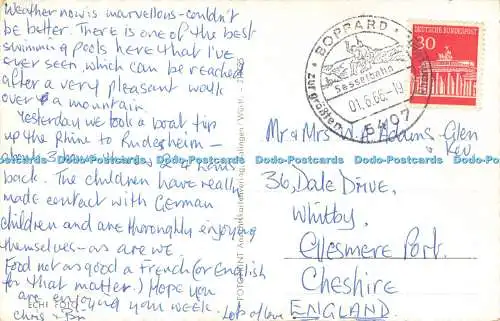 Weather now is marvellous - couldn't
be better. There is one of the best
swimming pools here that I've
ever seen, which can be reached
after a very pleasant walk
over a mountain.
Yesterday we took a boat trip
up the Rhine to Rudesheim -
about 3 hours
back. The children have really
made contact with German
children and are thoroughly enjoying
themselves - as are we.
Food not as good as French (or English
for that matter.) Hope you
are enjoying your week.
Lots of love
Chris
ECHT FOTO
BOPPARD
Sesselbahn
01.8.66.-19
5407
DEUTSCHE BUNDESPOST
30
Mr & Mrs W. Adams Glen
Kev
36, Dale Drive,
Whitby
Ellesmere Port.
Cheshire
ENGLAND
Dodo-Postcards